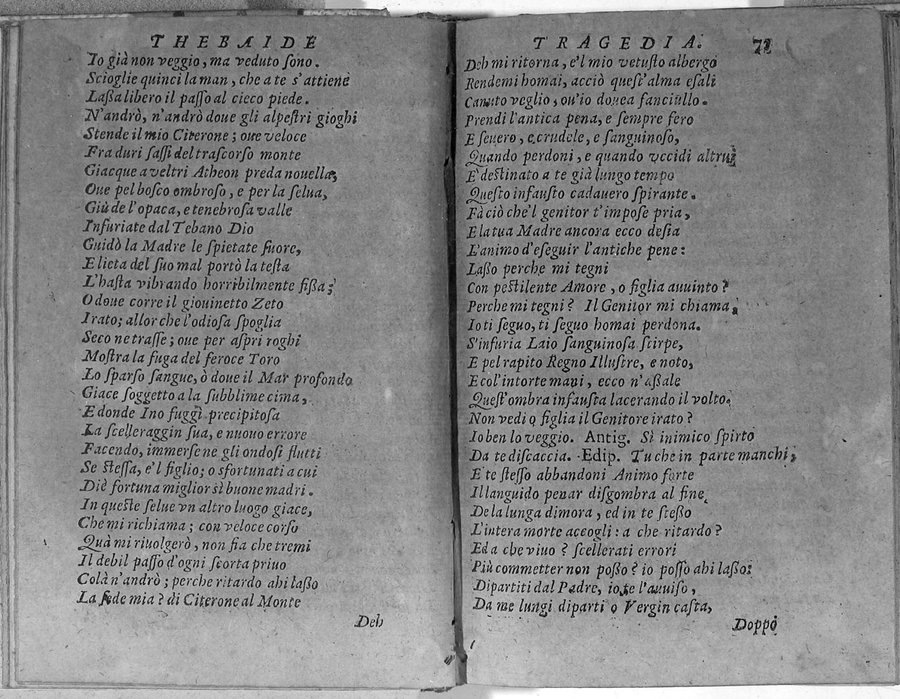 THEBAIDE
Io già non veggio, ma veduto sono.
Scioglie quinci la man, che a te s'attiene
Laßa libero il passo al cieco piede.
N'andrò, n'andrò doue gli alpestri gioghi
Stende il mio Citerone; oue veloce
Fra duri sassi del trascorso monte
Giacque a veltri Atheon preda nouella;
Oue pel bosco ombroso, e per la selua,
Giù de l'opaca, e tenebrosa valle
Infuriate dal Tebano Dio
Guidò la Madre le spietate suore,
E lieta del suo mal portò la testa
L'hasta vibrando horribilmente fißa;
O doue corre il giouinetto Zeto
Irato; allor che l'odiosa spoglia
Seco ne trasse; oue per aspri roghi
Mostra la fuga del feroce Toro
Lo sparso sangue, ò doue il Mar profondo
Giace soggetto a la subblime cima,
E donde Ino fuggì precipitosa
La scelleraggin sua, e nuouo errore
Facendo, immerse ne gli ondosi flutti
Se stessa, e'l figlio; o sfortunati a cui
Diè fortuna miglior sì buone madri.
In queste selue vn altro luogo giace,
Che mi richiama; con veloce corso
Quà mi riuolgerò, non fia che tremi
Il debil passo d'ogni scorta priuo
Colà n'andrò; perche ritardo ahi laßo
La sede mia? di Citerone al Monte
Deh
TRAGEDIA. 72
Deh mi ritorna, e'l mio vetusto albergo
Rendemi homai, acciò quest'alma esali
Canuto veglio, ou'io douea fanciullo.
Prendi l'antica pena, e sempre fero
E seuero, e crudele, e sanguinoso,
Quando perdoni, e quando vccidi altrui
E' destinato a te già lungo tempo
Questo infausto cadauero spirante.
Fà ciò che'l genitor t'impose pria,
E la tua Madre ancora ecco desia
L'animo d'eseguir l'antiche pene:
Laßo perche mi tegni
Con pestilente Amore, o figlia auuinto?
Perche mi tegni? Il Genitor mi chiama,
Io ti seguo, ti seguo homai perdona.
S'infuria Laio sanguinosa scirpe,
E pel rapito Regno Illustre, e noto,
E col'intorte mani, ecco n'aßale
Quest'ombra infausta lacerando il volto.
Non vedi o figlia il Genitore irato?
Io ben lo veggio. Antig. Sì inimico spirto
Da te discaccia. Edip. Tu che in parte manchi,
E te stesso abbandoni Animo forte
Il languido penar disgombra al fine
De la lunga dimora, ed in te steßo
L'intera morte accogli: a che ritardo?
Ed a che viuo? scellerati errori
Più commetter non poßo? io posso ahi laßo:
Dipartiti dal Padre, io te l'auuiso,
Da me lungi diparti o Vergin casta,
Doppo